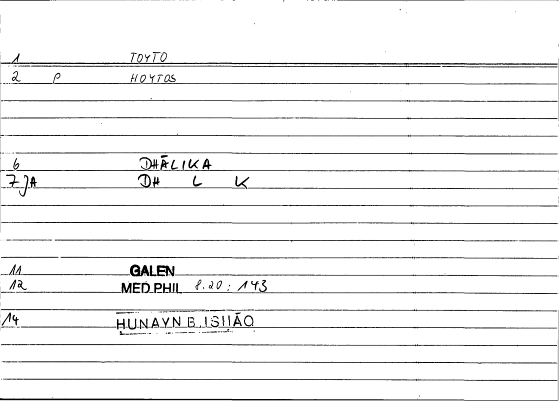 1 TOYTO
2 P HOYTOS
6 DHĀLIKA
7 JA DH L K
11 GALEN
12 MED.PHIL 8.20: 143
14 HUNAYN B. ISḤĀQ